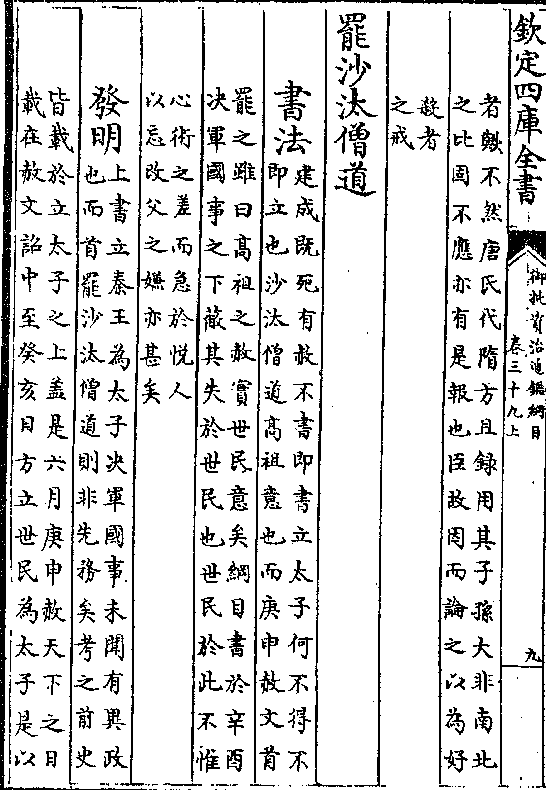 欽定四庫全書
御批資治通鑑綱目
卷三十九上
九
者歟不然唐氏代隋方且録用其子孫大非南北
之比固不應亦有是報也臣故因而論之以為好
殺者
之戒
罷沙汰僧道
書法
建成既死有赦不書即書立太子何不得不
即立也沙汰僧道髙祖意也而庚申赦文首
罷之雖曰髙祖之赦實世民意矣綱目書於辛酉
决軍國事之下蔽其失於世民也世民於此不惟
心術之差而急於悦人
以忘改父之嫌亦甚矣
發明
上書立秦王為太子决軍國事未聞有異政
也而首罷沙汰僧道則非先務矣考之前史
皆載於立太子之上盖是六月庚申赦天下之日
載在赦文詔中至癸亥日方立世民為太子是以